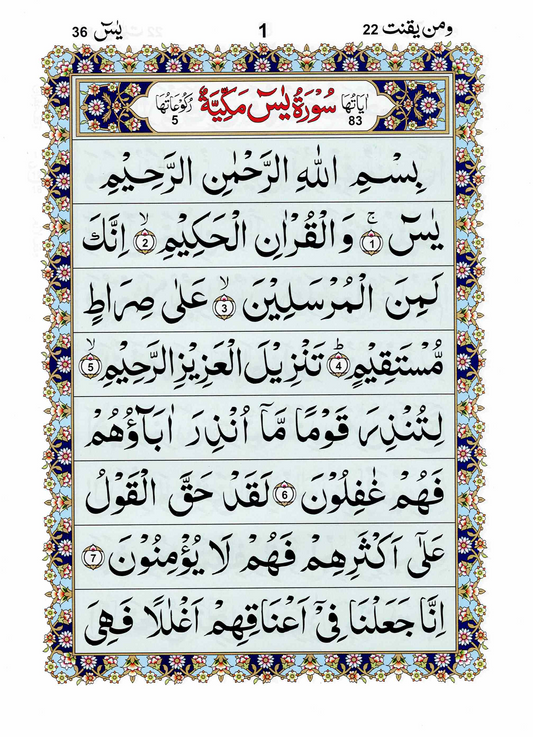 ومن يقنت 22 1 يٰسٓ 36
اٰيَاتُهَا 83 سُوْرَةُ يٰسٓ مَكِّيَّةٌ رُكُوْعَاتُهَا 5
بِسْمِ اللّٰهِ الرَّحْمٰنِ الرَّحِيْمِ
يٰسٓ ۚ 1 وَالْقُرْاٰنِ الْحَكِيْمِ ۙ 2 اِنَّكَ
لَمِنَ الْمُرْسَلِيْنَ ۙ 3 عَلٰى صِرَاطٍ
مُّسْتَقِيْمٍ ؕ 4 تَنْزِيْلَ الْعَزِيْزِ الرَّحِيْمِ ۙ 5
لِتُنْذِرَ قَوْمًا مَّاۤ اُنْذِرَ اٰبَآؤُهُمْ
فَهُمْ غٰفِلُوْنَ 6 لَقَدْ حَقَّ الْقَوْلُ
عَلٰۤى اَكْثَرِهِمْ فَهُمْ لَا يُؤْمِنُوْنَ 7
اِنَّا جَعَلْنَا فِيْۤ اَعْنَاقِهِمْ اَغْلٰلًا فَهِىَ